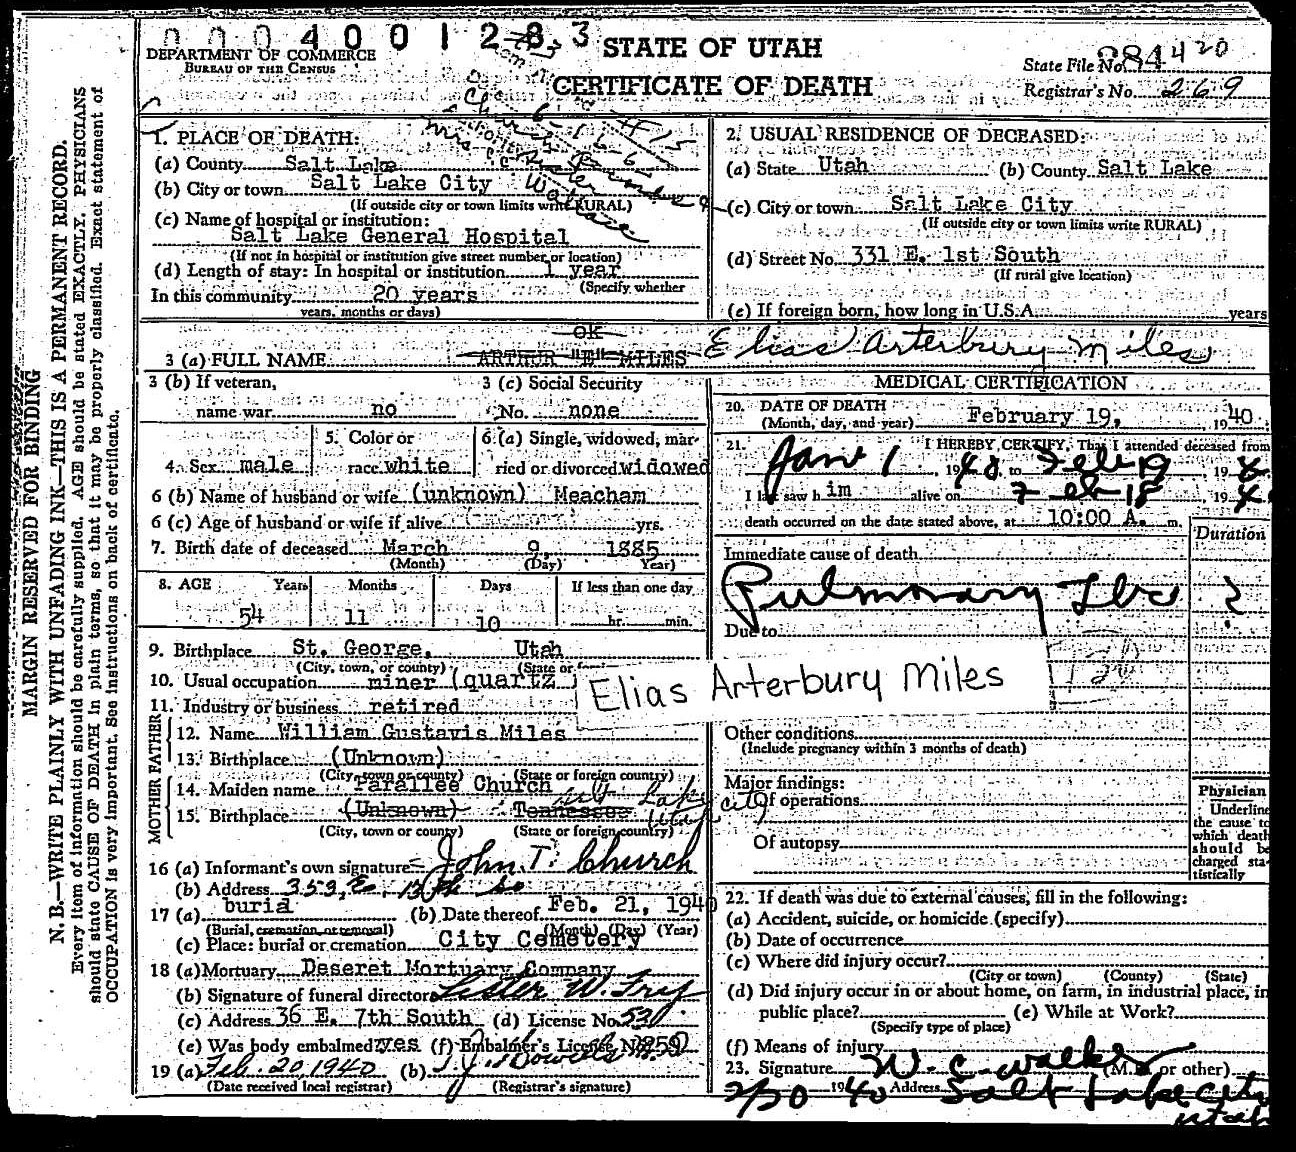 0004001283
DEPARTMENT OF COMMERCE
BUREAU OF THE CENSUS
STATE OF UTAH
CERTIFICATE OF DEATH
State File No. 284 420
Registrar's No. 269
MARGIN RESERVED FOR BINDING
N. B.—WRITE PLAINLY WITH UNFADING INK—THIS IS A PERMANENT RECORD.
Every item of information should be carefully supplied. AGE should be stated EXACTLY. PHYSICIANS
should state CAUSE OF DEATH in plain terms, so that it may be properly classified. Exact statement of
OCCUPATION is very important. See instructions on back of certificate.
1. PLACE OF DEATH:
(a) County Salt Lake
(b) City or town Salt Lake City
(If outside city or town limits write RURAL)
(c) Name of hospital or institution:
Salt Lake General Hospital
(If not in hospital or institution give street number or location)
(d) Length of stay: In hospital or institution 1 year
(Specify whether
In this community 20 years
years, months or days)
2. USUAL RESIDENCE OF DECEASED:
(a) State Utah (b) County Salt Lake
(c) City or town Salt Lake City
(If outside city or town limits write RURAL)
(d) Street No. 331 E. 1st South
(If rural give location)
(e) If foreign born, how long in U.S.A. years
OK
3 (a) FULL NAME ARTHUR "E" MILES Elias Arterbury Miles
3 (b) If veteran, name war no
3 (c) Social Security No. none
4. Sex male
5. Color or race white
6 (a) Single, widowed, married or divorced widowed
6 (b) Name of husband or wife (unknown) Meacham
6 (c) Age of husband or wife if alive yrs.
7. Birth date of deceased March 9, 1885
(Month) (Day) Year)
8. AGE Years Months Days If less than one day
54 11 10 hr. min.
9. Birthplace St. George, Utah
(City, town, or county) (State or
10. Usual occupation miner (quartz
11. Industry or business retired
FATHER
12. Name William Gustavis Miles
13. Birthplace (Unknown)
(City, town or county) (State or foreign country)
MOTHER
14. Maiden name Parallee Church
15. Birthplace (Unknown) Tennessee Salt Lake City Utah
(City, town or county) (State or foreign country)
16 (a) Informant's own signature John T. Church
(b) Address 353 E. 13th So
17 (a) burial (b) Date thereof Feb. 21, 1940
(Burial, cremation, or removal) (Month) (Day) (Year)
(c) Place: burial or cremation City Cemetery
18 (a) Mortuary Deseret Mortuary Company
(b) Signature of funeral director Lester W. Fry
(c) Address 36 E. 7th South (d) License No. 530
(e) Was body embalmed? yes (f) Embalmer's License No.
19 (a) Feb. 20 1940 (b)
(Date received local registrar) (Registrar's signature)
MEDICAL CERTIFICATION
20. DATE OF DEATH February 19, 1940
(Month, day, and year)
21. I HEREBY CERTIFY, That I attended deceased from
Jan 1 1940 to Feb 19 194
I last saw him alive on Feb 18 194
death occurred on the date stated above, at 10:00 A. m.
Duration
Immediate cause of death
Pulmonary Tbc ?
Due to
Elias Arterbury Miles
Other conditions
(Include pregnancy within 3 months of death)
Major findings:
Of operations
Of autopsy
Physician
Underline
the cause to
which death
should be
charged sta-
tistically
22. If death was due to external causes, fill in the following:
(a) Accident, suicide, or homicide (specify)
(b) Date of occurrence
(c) Where did injury occur?
(City or town) (County) (State)
(d) Did injury occur in or about home, on farm, in industrial place, in
public place? (e) While at Work?
(Specify type of place)
(f) Means of injury
23. Signature W. C. Walker (M.D. or other)
2/20 1940 Address Salt Lake City
Utah